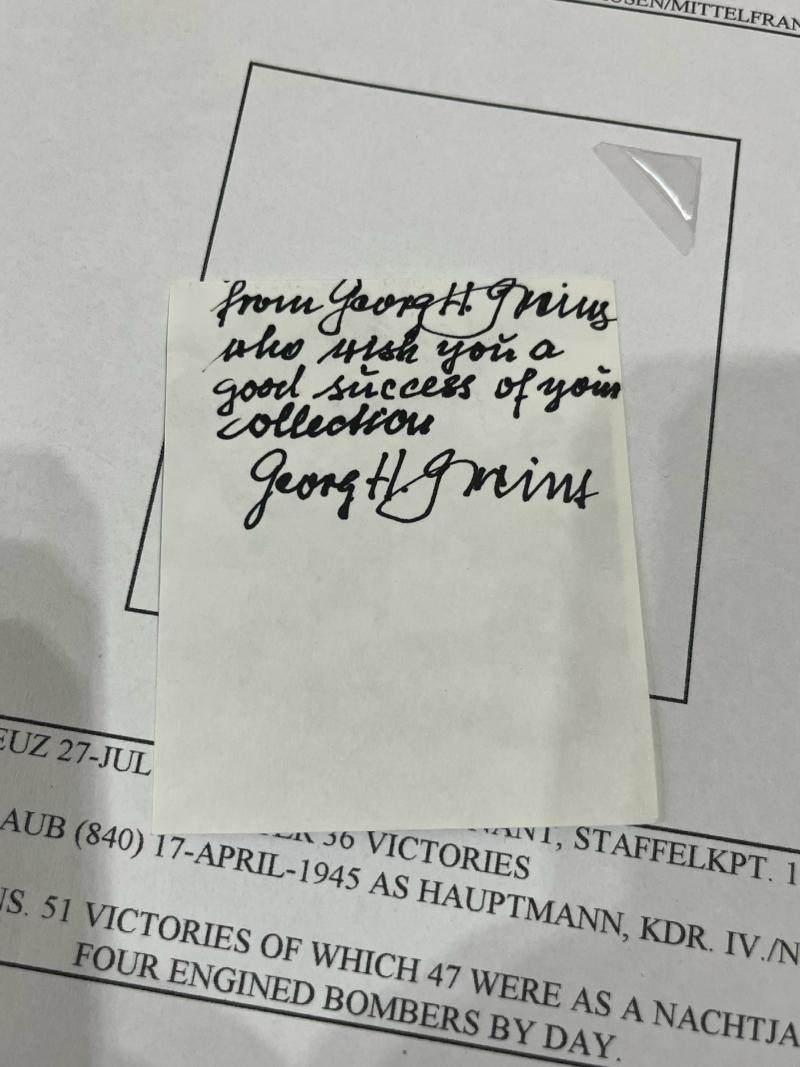 USEN/MITTELFRAN
from Georg H. Greiner
who wish you a
good success of your
collection
Georg H. Greiner
EUZ 27-JUL
NANT, STAFFELKPT. 1
36 VICTORIES
AUB (840) 17-APRIL-1945 AS HAUPTMANN, KDR. IV./N
NS. 51 VICTORIES OF WHICH 47 WERE AS A NACHTJA
FOUR ENGINED BOMBERS BY DAY.